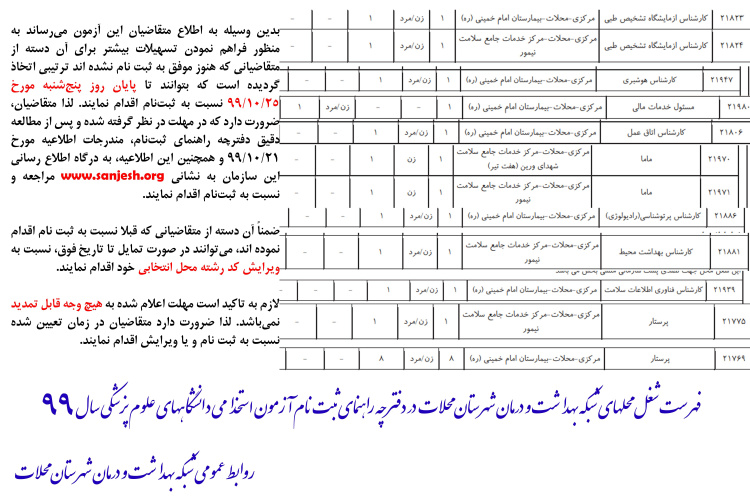 بدین وسیله به اطلاع متقاضیان این آزمون می‌رساند به
منظور فراهم نمودن تسهیلات بیشتر برای آن دسته از
متقاضیانی که هنوز موفق به ثبت نام نشده اند ترتیبی اتخاذ
گردیده است که بتوانند تا پایان روز پنج‌شنبه مورخ
۹۹/۱۰/۲۵ نسبت به ثبت‌نام اقدام نمایند. لذا متقاضیان،
ضرورت دارد که در مهلت در نظر گرفته شده و پس از مطالعه
دقیق دفترچه راهنمای ثبت‌نام، مندرجات اطلاعیه مورخ
۹۹/۱۰/۲۱ و همچنین این اطلاعیه، به درگاه اطلاع رسانی
این سازمان به نشانی www.sanjesh.org مراجعه و
نسبت به ثبت‌نام اقدام نمایند.
ضمناً آن دسته از متقاضیانی که قبلا نسبت به ثبت نام اقدام
نموده اند، می‌توانند در صورت تمایل تا تاریخ فوق، نسبت به
ویرایش کد رشته محل انتخابی خود اقدام نمایند.
لازم به تاکید است مهلت اعلام شده به هیچ وجه قابل تمدید
نمی‌باشد. لذا ضرورت دارد متقاضیان در زمان تعیین شده
نسبت به ثبت نام و یا ویرایش اقدام نمایند.
۲۱۸۲۳ کارشناس آزمایشگاه تشخیص طبی مرکزی-محلات-بیمارستان امام خمینی (ره) ۱ زن/مرد ۱ - -
۲۱۸۲۴ کارشناس آزمایشگاه تشخیص طبی مرکزی-محلات-مرکز خدمات جامع سلامت ۱ زن/مرد ۱ - -
نیمور
۲۱۹۴۷ کارشناس هوشبری مرکزی-محلات-بیمارستان امام خمینی (ره) ۱ زن ۱ - -
۲۱۹۸۰ مسئول خدمات مالی مرکزی-محلات-بیمارستان امام خمینی (ره) ۱ زن/مرد - - ۱
۲۱۸۰۶ کارشناس اتاق عمل مرکزی-محلات-بیمارستان امام خمینی (ره) ۱ زن/مرد ۱ - -
۲۱۹۷۰ ماما مرکزی-محلات-مرکز خدمات جامع سلامت ۱ زن ۱ - -
شهدای ورین (هفت تیر)
۲۱۹۷۱ ماما مرکزی-محلات-مرکز خدمات جامع سلامت ۱ زن ۱ - -
نیمور
۲۱۸۸۶ کارشناس پرتوشناسی(رادیولوژی) مرکزی-محلات-بیمارستان امام خمینی (ره) ۱ زن ۱ - -
۲۱۸۸۱ کارشناس بهداشت محیط مرکزی-محلات-مرکز خدمات جامع سلامت ۱ زن/مرد ۱ - -
نیمور
۲۱۹۳۹ کارشناس فناوری اطلاعات سلامت مرکزی-محلات-بیمارستان امام خمینی (ره) ۱ زن/مرد ۱ - -
۲۱۷۷۵ پرستار مرکزی-محلات-مرکز خدمات جامع سلامت ۱ زن/مرد ۱ - -
نیمور
۲۱۷۶۹ پرستار مرکزی-محلات-بیمارستان امام خمینی (ره) ۸ زن/مرد ۸ - -
فهرست شغل محلهای شبکه بهداشت و درمان شهرستان محلات در دفترچه راهنمای ثبت نام آزمون استخدامی دانشگاههای علوم پزشکی سال ۹۹
روابط عمومی شبکه بهداشت و درمان شهرستان محلات